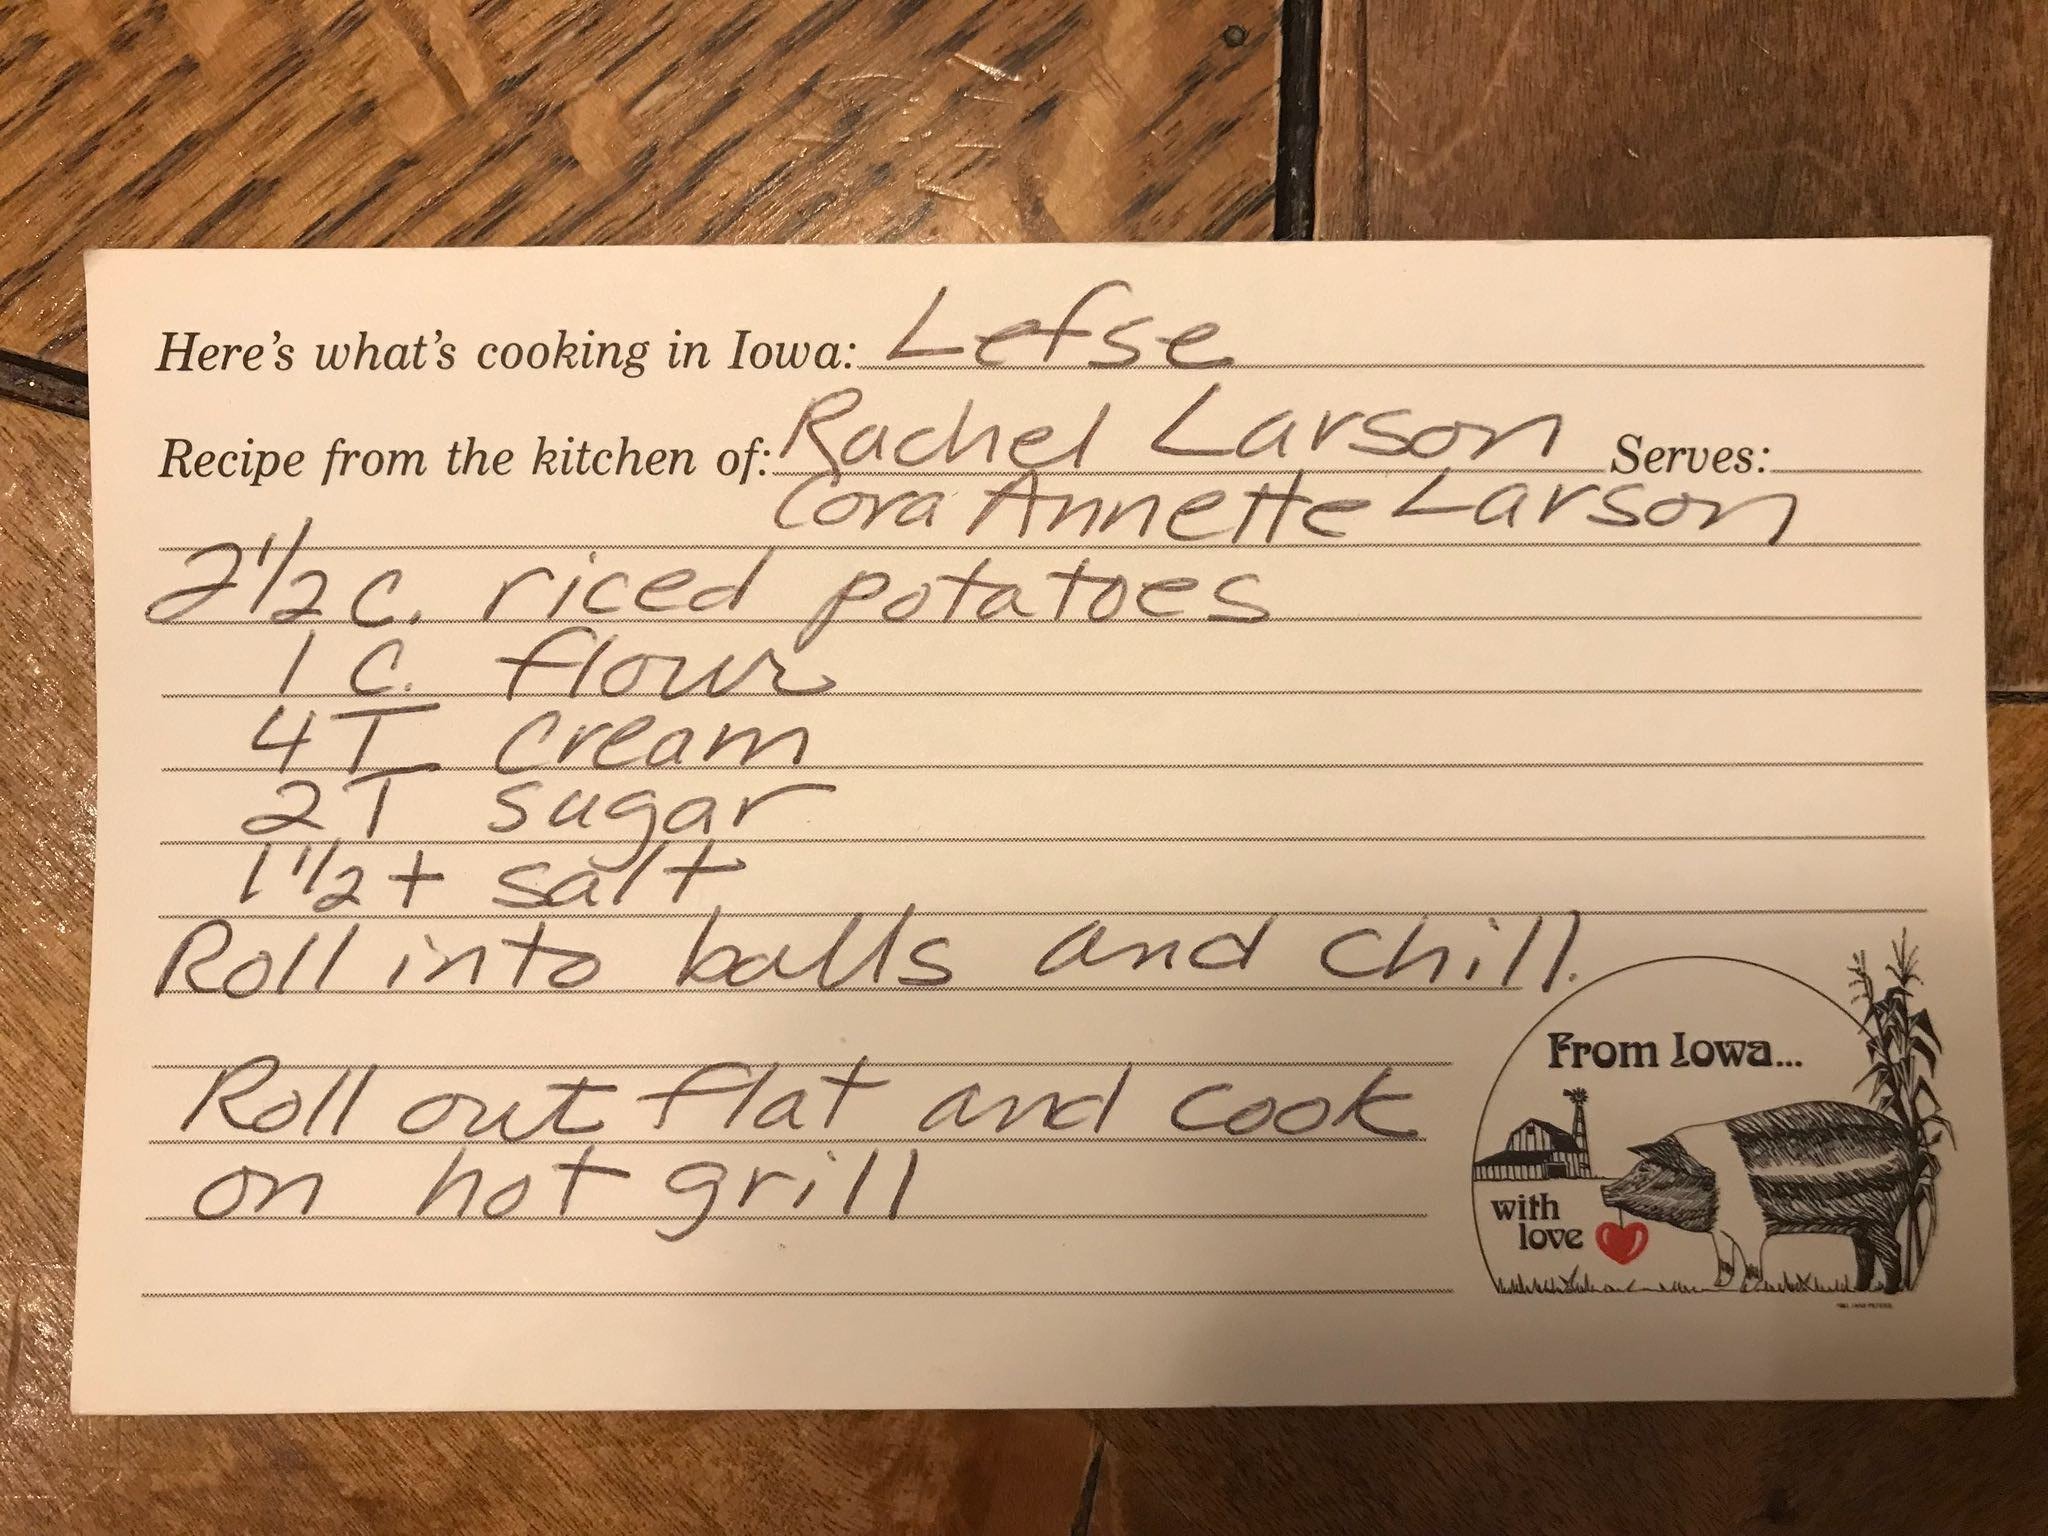 Here's what's cooking in Iowa: Lefse
Recipe from the kitchen of: Rachel Larson Serves:
Cora Annette Larson
2 1/2 C. riced potatoes
1 C. flour
4 T cream
2 T sugar
1 1/2 t salt
Roll into balls and chill.
Roll out flat and cook
on hot grill
From Iowa...
with
love